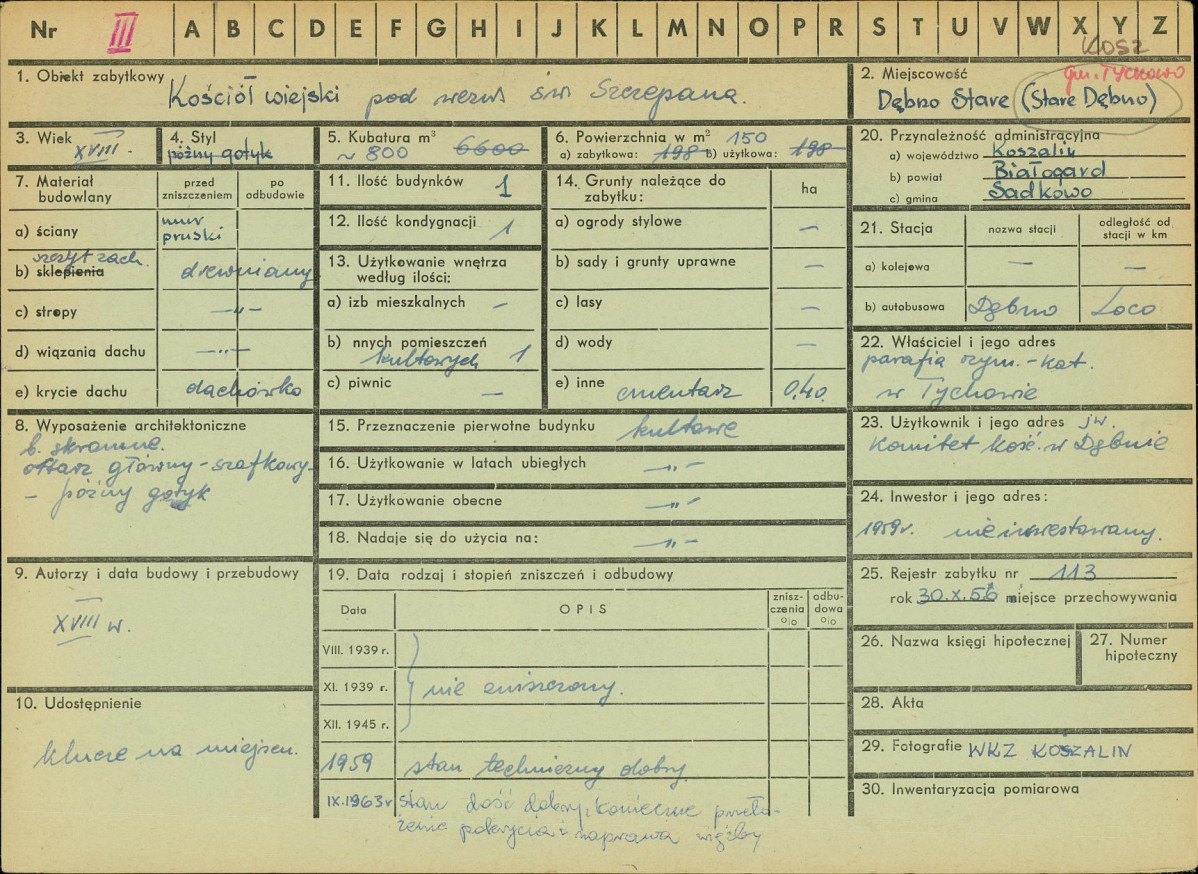 Nr III A B C D E F G H I J K L M N O P R S T U V W X Y Z
KOSZ
1. Obiekt zabytkowy
Kościół wiejski pod wezw św Szczepana.
2. Miejscowość
gm. TYCHOWO
Dębno Stare (Stare Dębno)
3. Wiek
XVIII.
4. Styl
późny gotyk
5. Kubatura m³
~ 800 6600
6. Powierzchnia w m² 150
a) zabytkowa: 198 b) użytkowa: 198
7. Materiał budowlany
przed zniszczeniem
po odbudowie
a) ściany
mur pruski
szczyt zach.
b) sklepienia drewniany
c) stropy —„—
d) wiązania dachu —„—
e) krycie dachu dachówka
8. Wyposażenie architektoniczne
b. skromne.
ołtarz główny - szafkowy -
- późny gotyk
9. Autorzy i data budowy i przebudowy
XVIII w.
10. Udostępnienie
klucze na miejscu.
11. Ilość budynków 1
12. Ilość kondygnacji 1
13. Użytkowanie wnętrza
według ilości:
a) izb mieszkalnych —
b) nnych pomieszczeń
kultowych 1
c) piwnic —
14. Grunty należące do
zabytku:
ha
a) ogrody stylowe —
b) sady i grunty uprawne —
c) lasy —
d) wody —
e) inne cmentarz 0,40.
15. Przeznaczenie pierwotne budynku kultowe
16. Użytkowanie w latach ubiegłych —„—
17. Użytkowanie obecne —„—
18. Nadaje się do użycia na: —„—
19. Data rodzaj i stopień zniszczeń i odbudowy
Data
OPIS
znisz-
czenia
o|o
odbu-
dowa
o|o
VIII. 1939 r.
XI. 1939 r. nie zniszczony.
XII. 1945 r.
1959 stan techniczny dobry.
IX.1963 r stan dość dobry, konieczne przeło-
żenie pokrycia i naprawa więźby
20. Przynależność administracyjna
a) województwo Koszalin
b) powiat Białogard
c) gmina Sadkowo
21. Stacja
nazwa stacji
odległość od
stacji w km
a) kolejowa — —
b) autobusowa Dębno Loco
22. Właściciel i jego adres
parafia rzym.-kat.
w Tychowie
23. Użytkownik i jego adres jw.
Komitet Kość. w Dębnie
24. Inwestor i jego adres:
1959r. nieinwestowany.
25. Rejestr zabytku nr 113
rok 30.X.56 miejsce przechowywania
26. Nazwa księgi hipotecznej
27. Numer
hipoteczny
28. Akta
29. Fotografie WKZ KOSZALIN
30. Inwentaryzacja pomiarowa